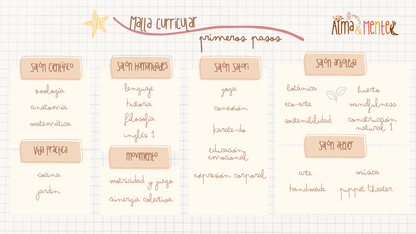 Malla curricular
primeros pasos
Alma & Mente
Salón Científico
zoología
anatomía
matemática
Vida práctica
cocina
jardín
Salón Humanidades
lenguaje
historia
filosofía
inglés 1
movimiento
motricidad y juego
sinergia colectiva
yoga
conexión
karate-do
educación
emocional
expresión corporal
botánica
eco-arte
sostenibilidad
huerto
mindfulness
construcción
natural 1
Salón atelier
arte
handmade
música
puppet theater